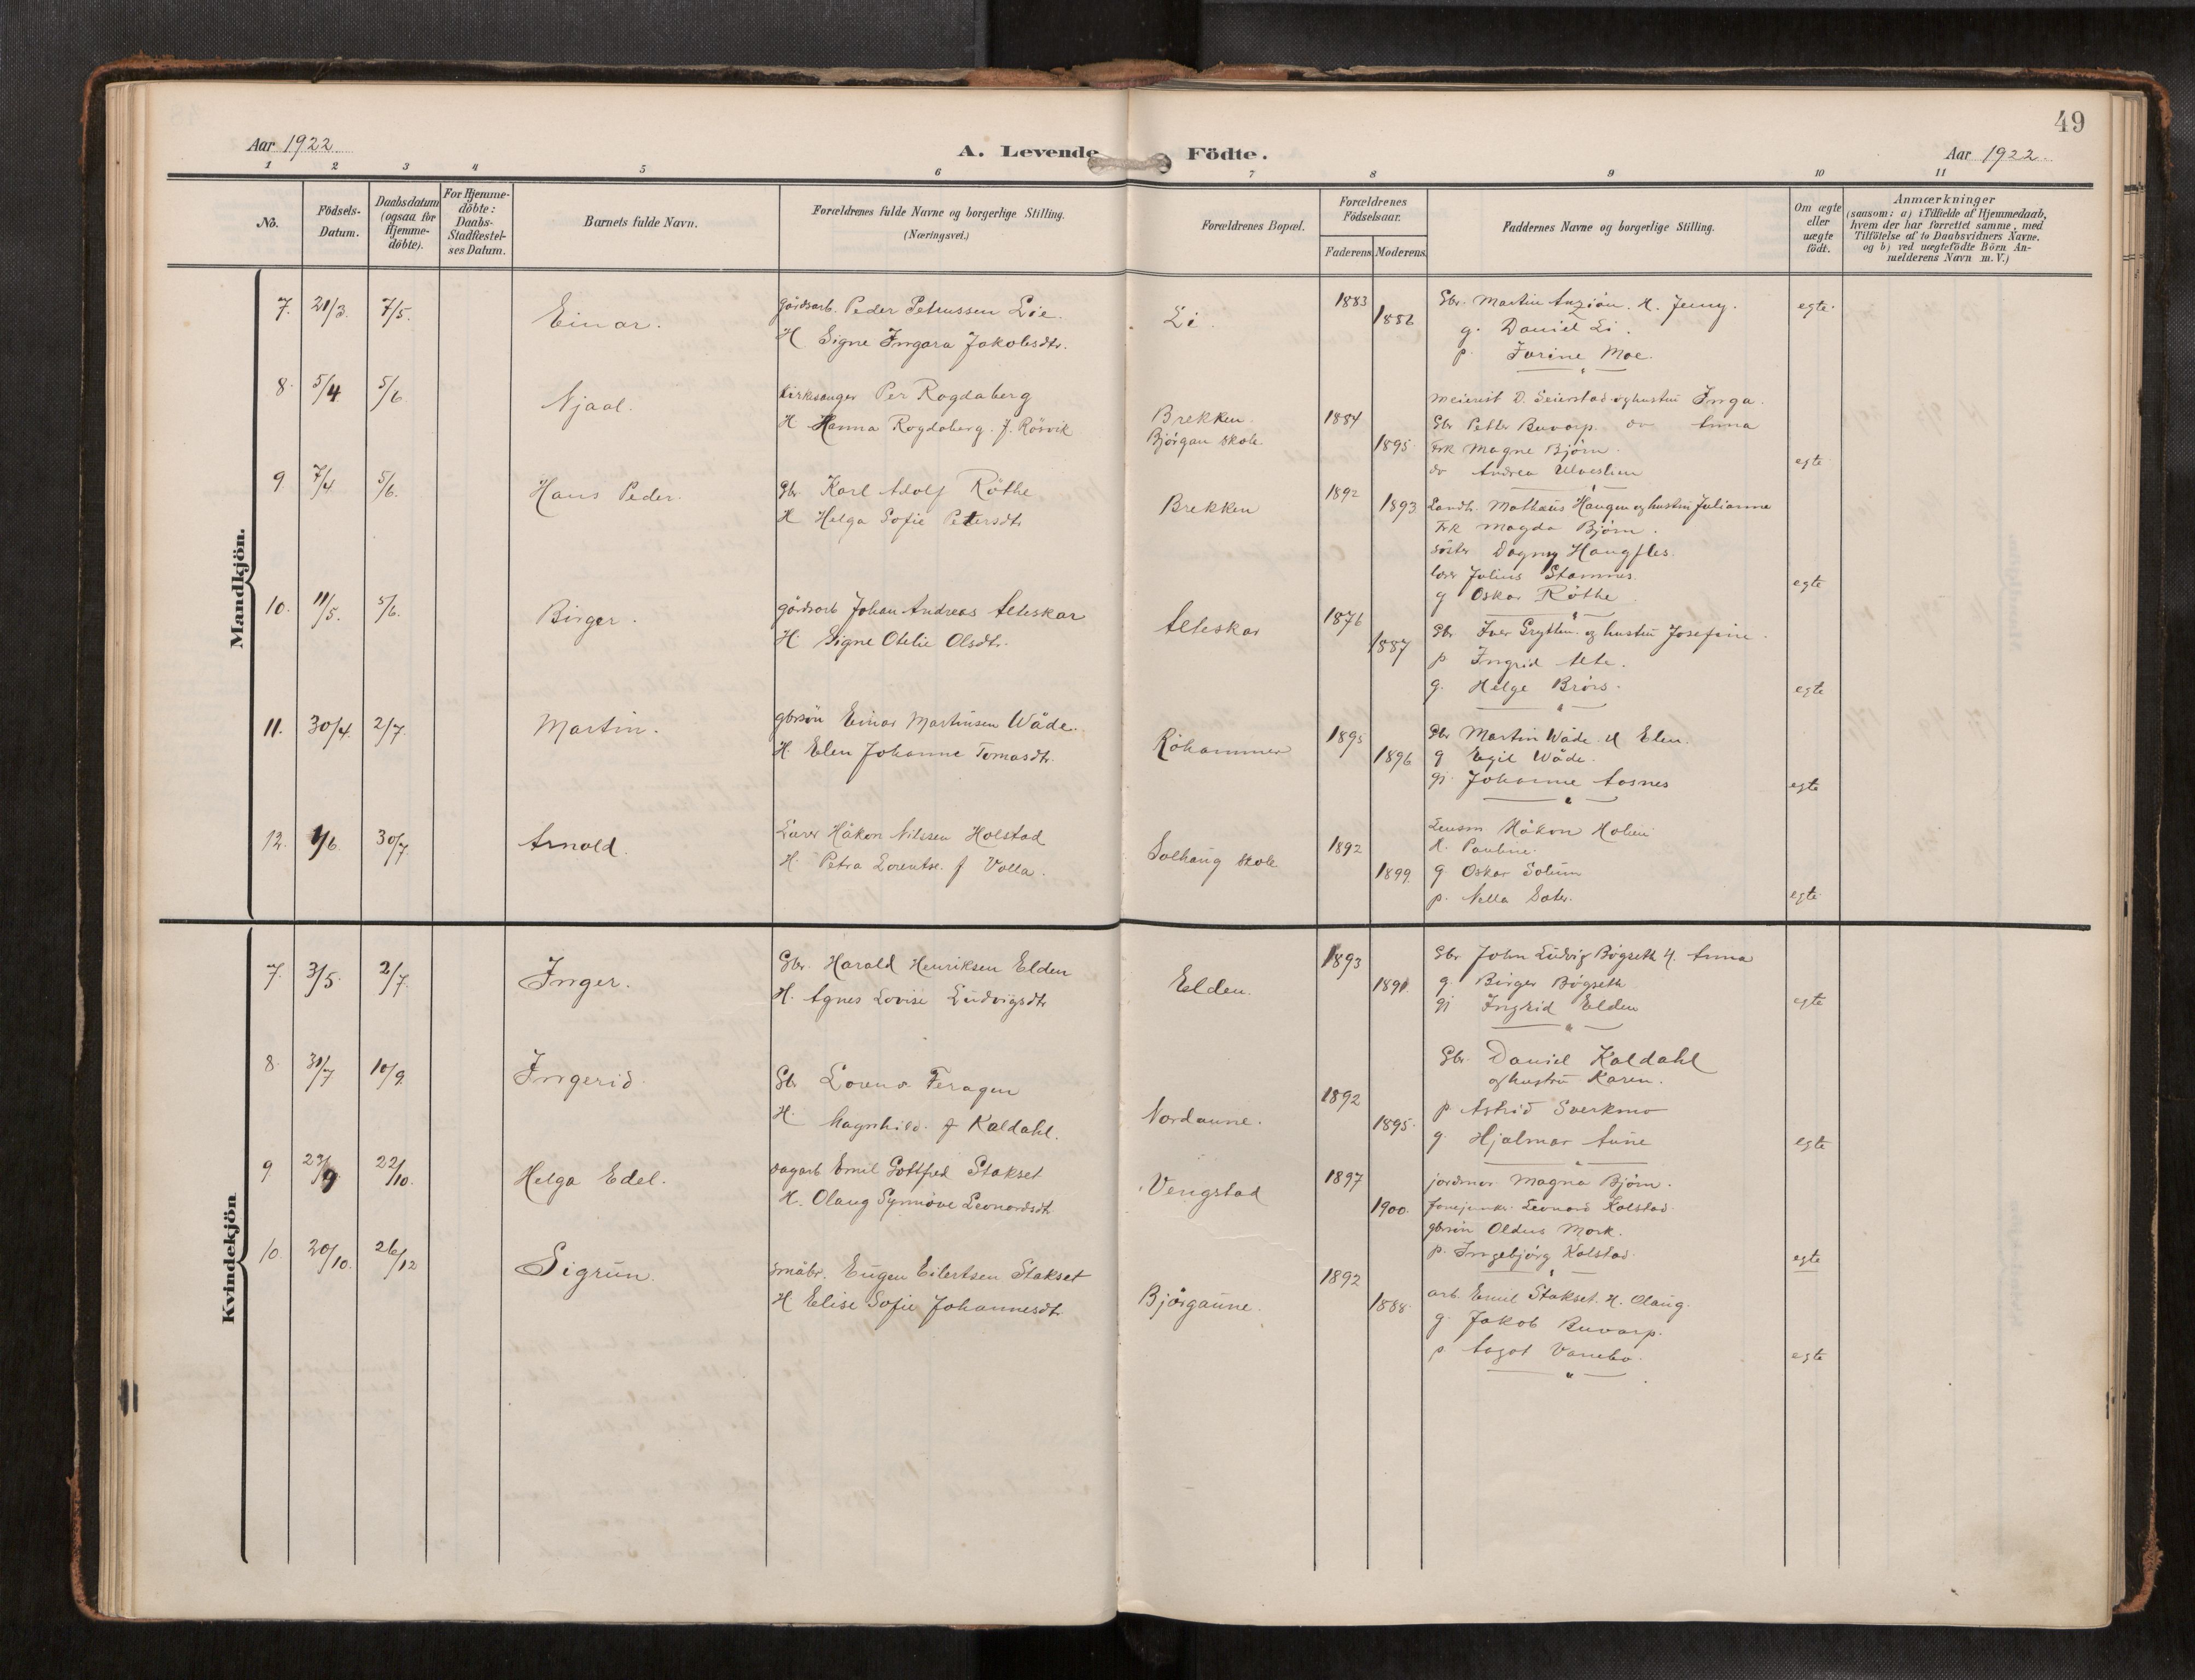 49
Aar 1922.
A. Levende Födte.
Aar 1922.
1 2 3 4 5 6 7 8 9 10 11
No.
Födsels-Datum.
Daabsdatum (ogsaa for Hjemme-döbte).
For Hjemme-döbte: Daabs-Stadfæstel-ses Datum.
Barnets fulde Navn.
Forældrenes fulde Navne og borgerlige Stilling.
(Næringsvei.)
Forældrenes Bopæl.
Forældrenes Födselsaar.
Faderens Moderens
Faddernes Navne og borgerlige Stilling.
Om ægte eller uægte födt.
Anmærkninger
(saasom: a) i Tilfælde af Hjemmedaab,
hvem der har forrettet samme, med
Tilföielse af to Daabsvidners Navne.
og b) ved uægtefödte Börn An-
melderens Navn m. V.)
Mandkjön.
7. 21/3. 7/5. Einar.
gårdsarb. Peder Petrussen Lie.
H Signe Ingara Jakobsdtr.
Li. 1883
1886
Gbr. Martin H. Jenny.
g. Daniel Li.
p. Moe.
egte.
8. 5/4 5/6 Njaal.
kirkesanger Per Rogdaberg
H Hanna Rogdaberg. f. Rösvik
Brekken.
Bjørgan skole.
1884
1895
meierist D. Seierstad og hustru Inga.
Gbr Petter Buvarp do Anna
Frk Magne Bjørn.
do Andrea
egte
9. 7/4 5/6. Hans Peder.
Gbr. Karl Adolf Röthe
H Helga Sofie Petersdtr
Brekken
1892
1893
Landh. Mathæus Haugen og hustru Julianne
Frk Magda Bjørn.
söster Dagny Haugfles.
lærer Julius Stamnes.
g Oskar Röthe
egte
10. 11/5. 5/6. Birger.
gårdsarb Johan Andreas Alteskar
H. Signe Otelie Olsdtr.
Alteskar
1876
1887
Gbr Iver Gryttin og hustru Josefine.
p. Ingrid
g. Helge Brörs.
egte
11. 30/4. 2/7. Martin.
gbrsön Einar Martinsen Wåde.
H. Elen Johanne Tomasdtr.
Röhammer
1895
1896
Gbr Martin Wåde H Elen.
g Egil Wåde.
gj. Johanne Aasnes
egte
12. 1/6. 30/7. Arnold.
Lærer Håkon Nilssen Holstad
H. Petra Lorentse. f Volla.
Solhaug skole
1892
1899.
Lensm Håkon Holien
H. Pauline.
g Oskar Solum
p. Nella Sæter.
egte
Kvindekjön
7. 3/5. 2/7. Inger.
Gbr. Harald Henriksen Elden
H. Agnes Lovise Ludvigsdtr
Elden.
1893
1891.
Gbr John Ludvig Bögseth H. Anna
g. Birger Bögseth
gj Ingrid Elden
egte
8. 31/7 10/9. Ingerid
Gbr Lorens Feragen
H. Magnhild. f Kaldahl.
Nordaune.
1892
1895.
Gbr. Daniel Kaldahl
og hustru Karen.
p Astrid Sverkmo
g. Hjalmar Aune
egte
9 23/9 22/10. Helga Edel.
dagarb Emil Gottfred Stakset
H. Olaug Synnöve Leonardsdtr
Vengstad
1897
1900.
jordmor Magna Bjørn.
Leonard Kolstad.
gbrsön Oldus Mork.
p. Ingebjörg Kolstad.
egte
10. 20/10. 26/12 Sigrun.
småbr. Eugen Eilertsen Stakset
H Elise Sofie Johannesdtr
Bjørgaune.
1892
1888.
arb. Emil Stakset. H. Olaug.
g. Jakob Buvarp.
p Aagot Vanebo.
egte